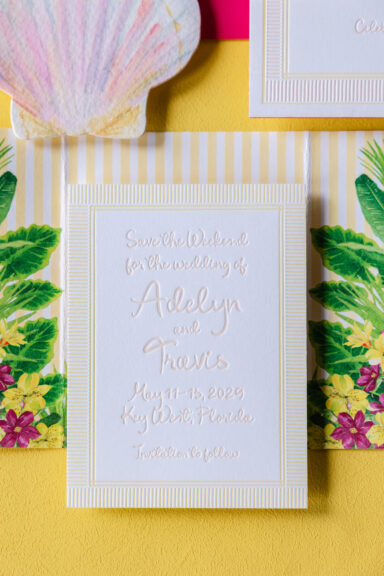 Save the Weekend
for the wedding of
Adelyn
and
Travis
May 11-15, 2029
Key West, Florida
Invitation to follow